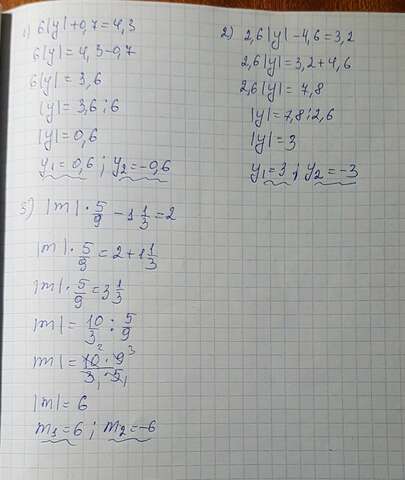 1) 6|y| + 0,7 = 4,3
6|y| = 4,3 - 0,7
6|y| = 3,6
|y| = 3,6 : 6
|y| = 0,6
y₁ = 0,6 ; y₂ = -0,6
2) 2,6|y| - 4,6 = 3,2
2,6|y| = 3,2 + 4,6
2,6|y| = 7,8
|y| = 7,8 : 2,6
|y| = 3
y₁ = 3 ; y₂ = -3
3) |m| · 5/9 - 1 1/3 = 2
|m| · 5/9 = 2 + 1 1/3
|m| · 5/9 = 3 1/3
|m| = 10/3 : 5/9
|m| = 10² · 9³ / 3₁ · 5₁
|m| = 6
m₁ = 6 ; m₂ = -6